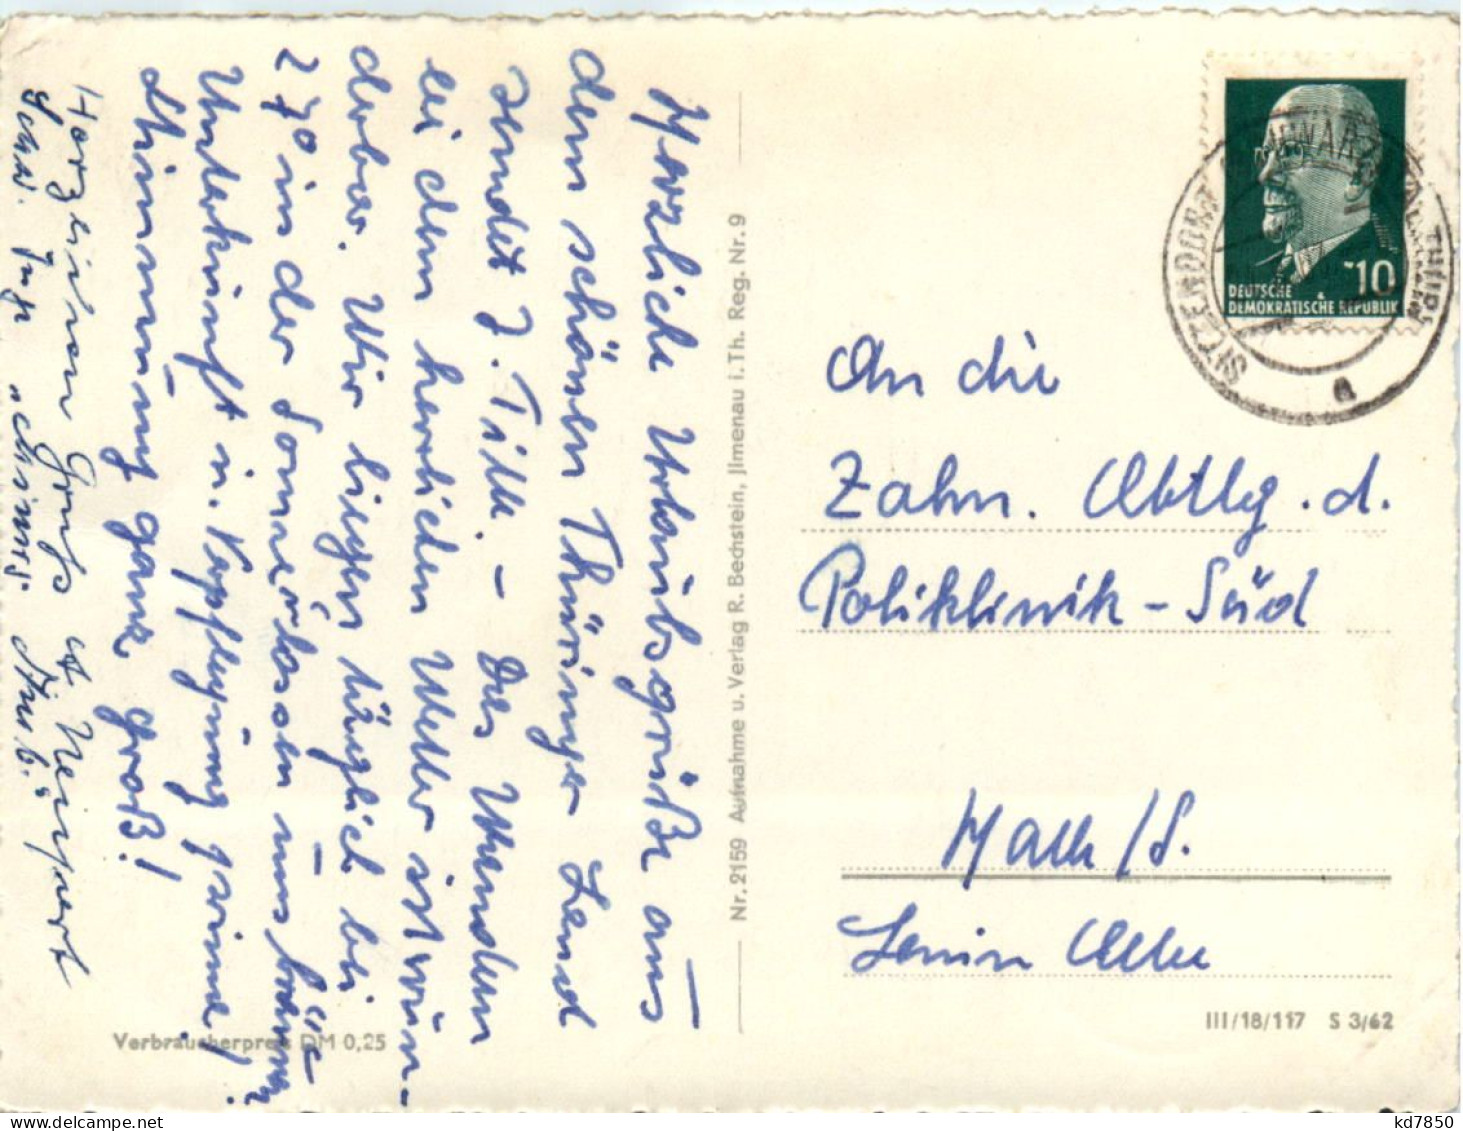 Herzliche Urlaubsgrüße aus
dem schönen Thüringer Land
sendet J. Tille. - Das Wandern
bei dem herrlichen Wetter ist wun-
derbar. Wir liegen täglich bei
27° in der Sonne, lassen uns bräunen.
Unterkunft u. Verpflegung prima,
Stimmung ganz groß!
Herzlichen Gruß
An die
Zahn. Abtlg. d.
Poliklinik - Süd
Halle/S.
Lenin Allee
Nr. 2159 Aufnahme u. Verlag R. Bechstein, Jlmenau i. Th. Reg. Nr. 9
Verbraucherpreis DM 0,25
III/18/117 S 3/62
10
DEUTSCHE
DEMOKRATISCHE REPUBLIK
SITZENDORF
SCHWARZATAL
THÜR
a
kd7850